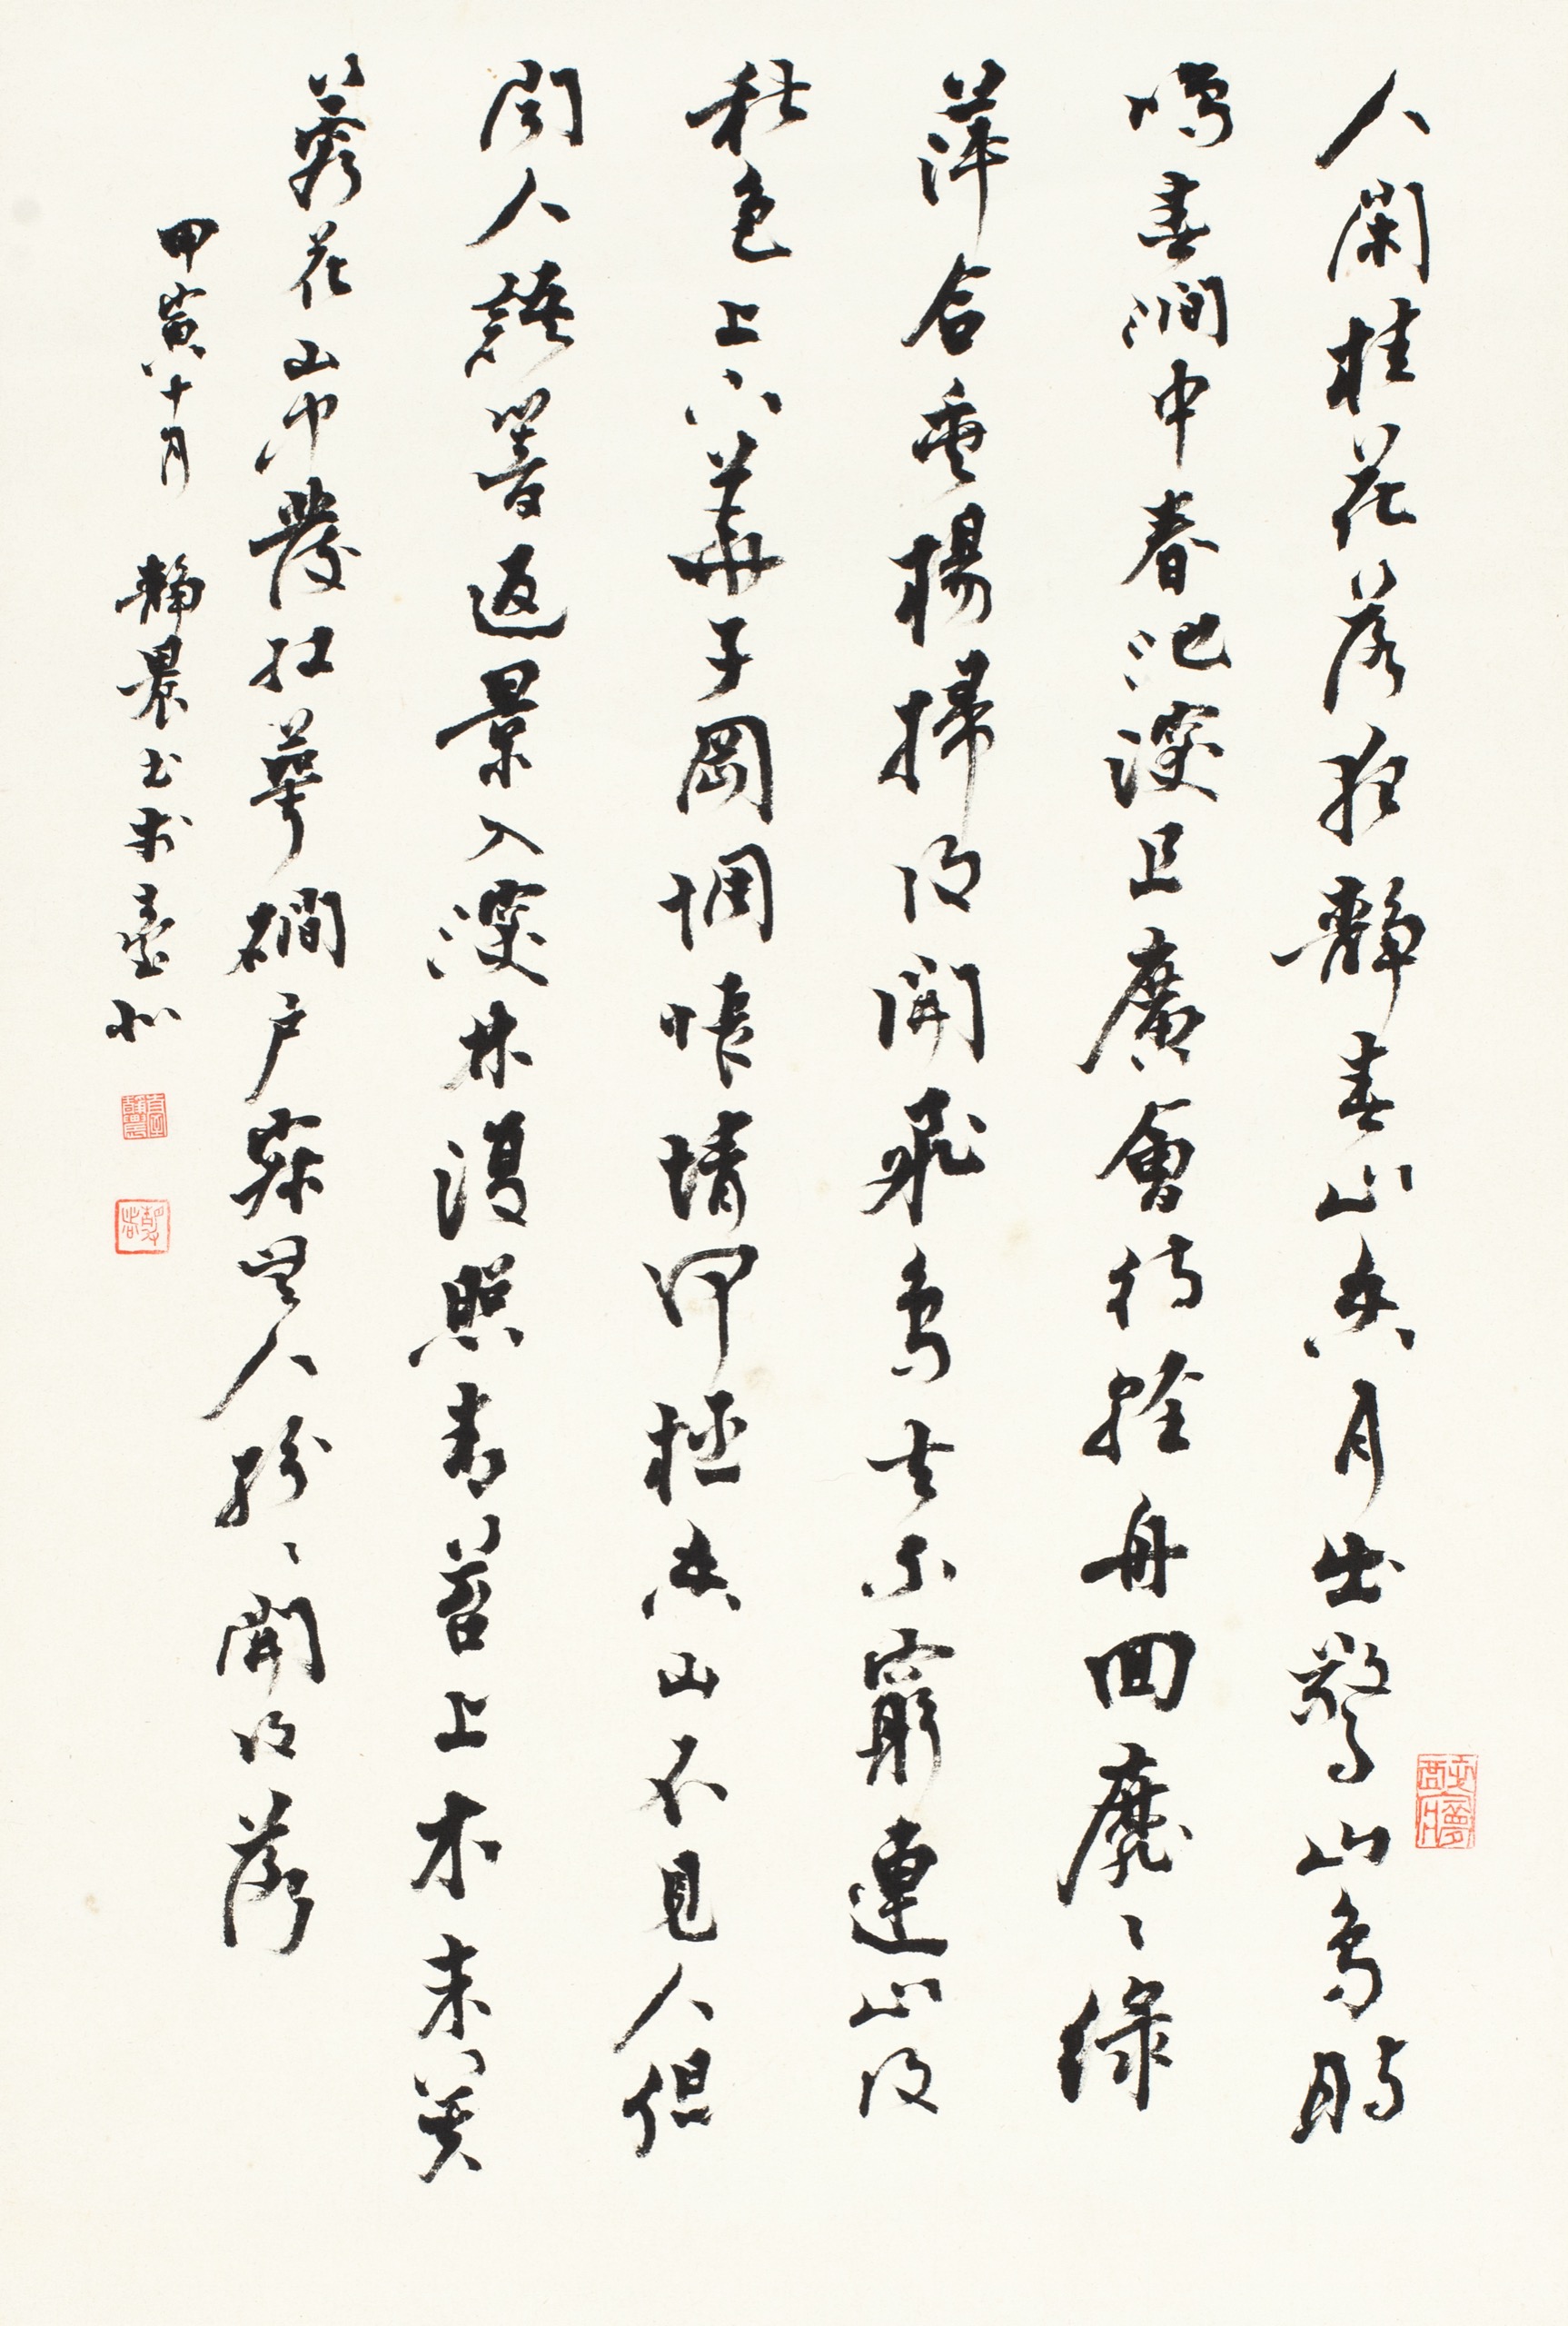 人閑桂花落夜靜春山空月出驚山鳥時
鳴春澗中春池深且廣會待輕舟回靡〻綠
萍合垂楊掃復開飛鳥去不窮連山復
秋色上下華子岡惆悵情何極空山不見人但
聞人語響返景入深林復照青苔上木末芙
蓉花山中發紅萼磵戶寂無人紛〻開復落
甲寅十月 靜農書於臺北
臺靜農